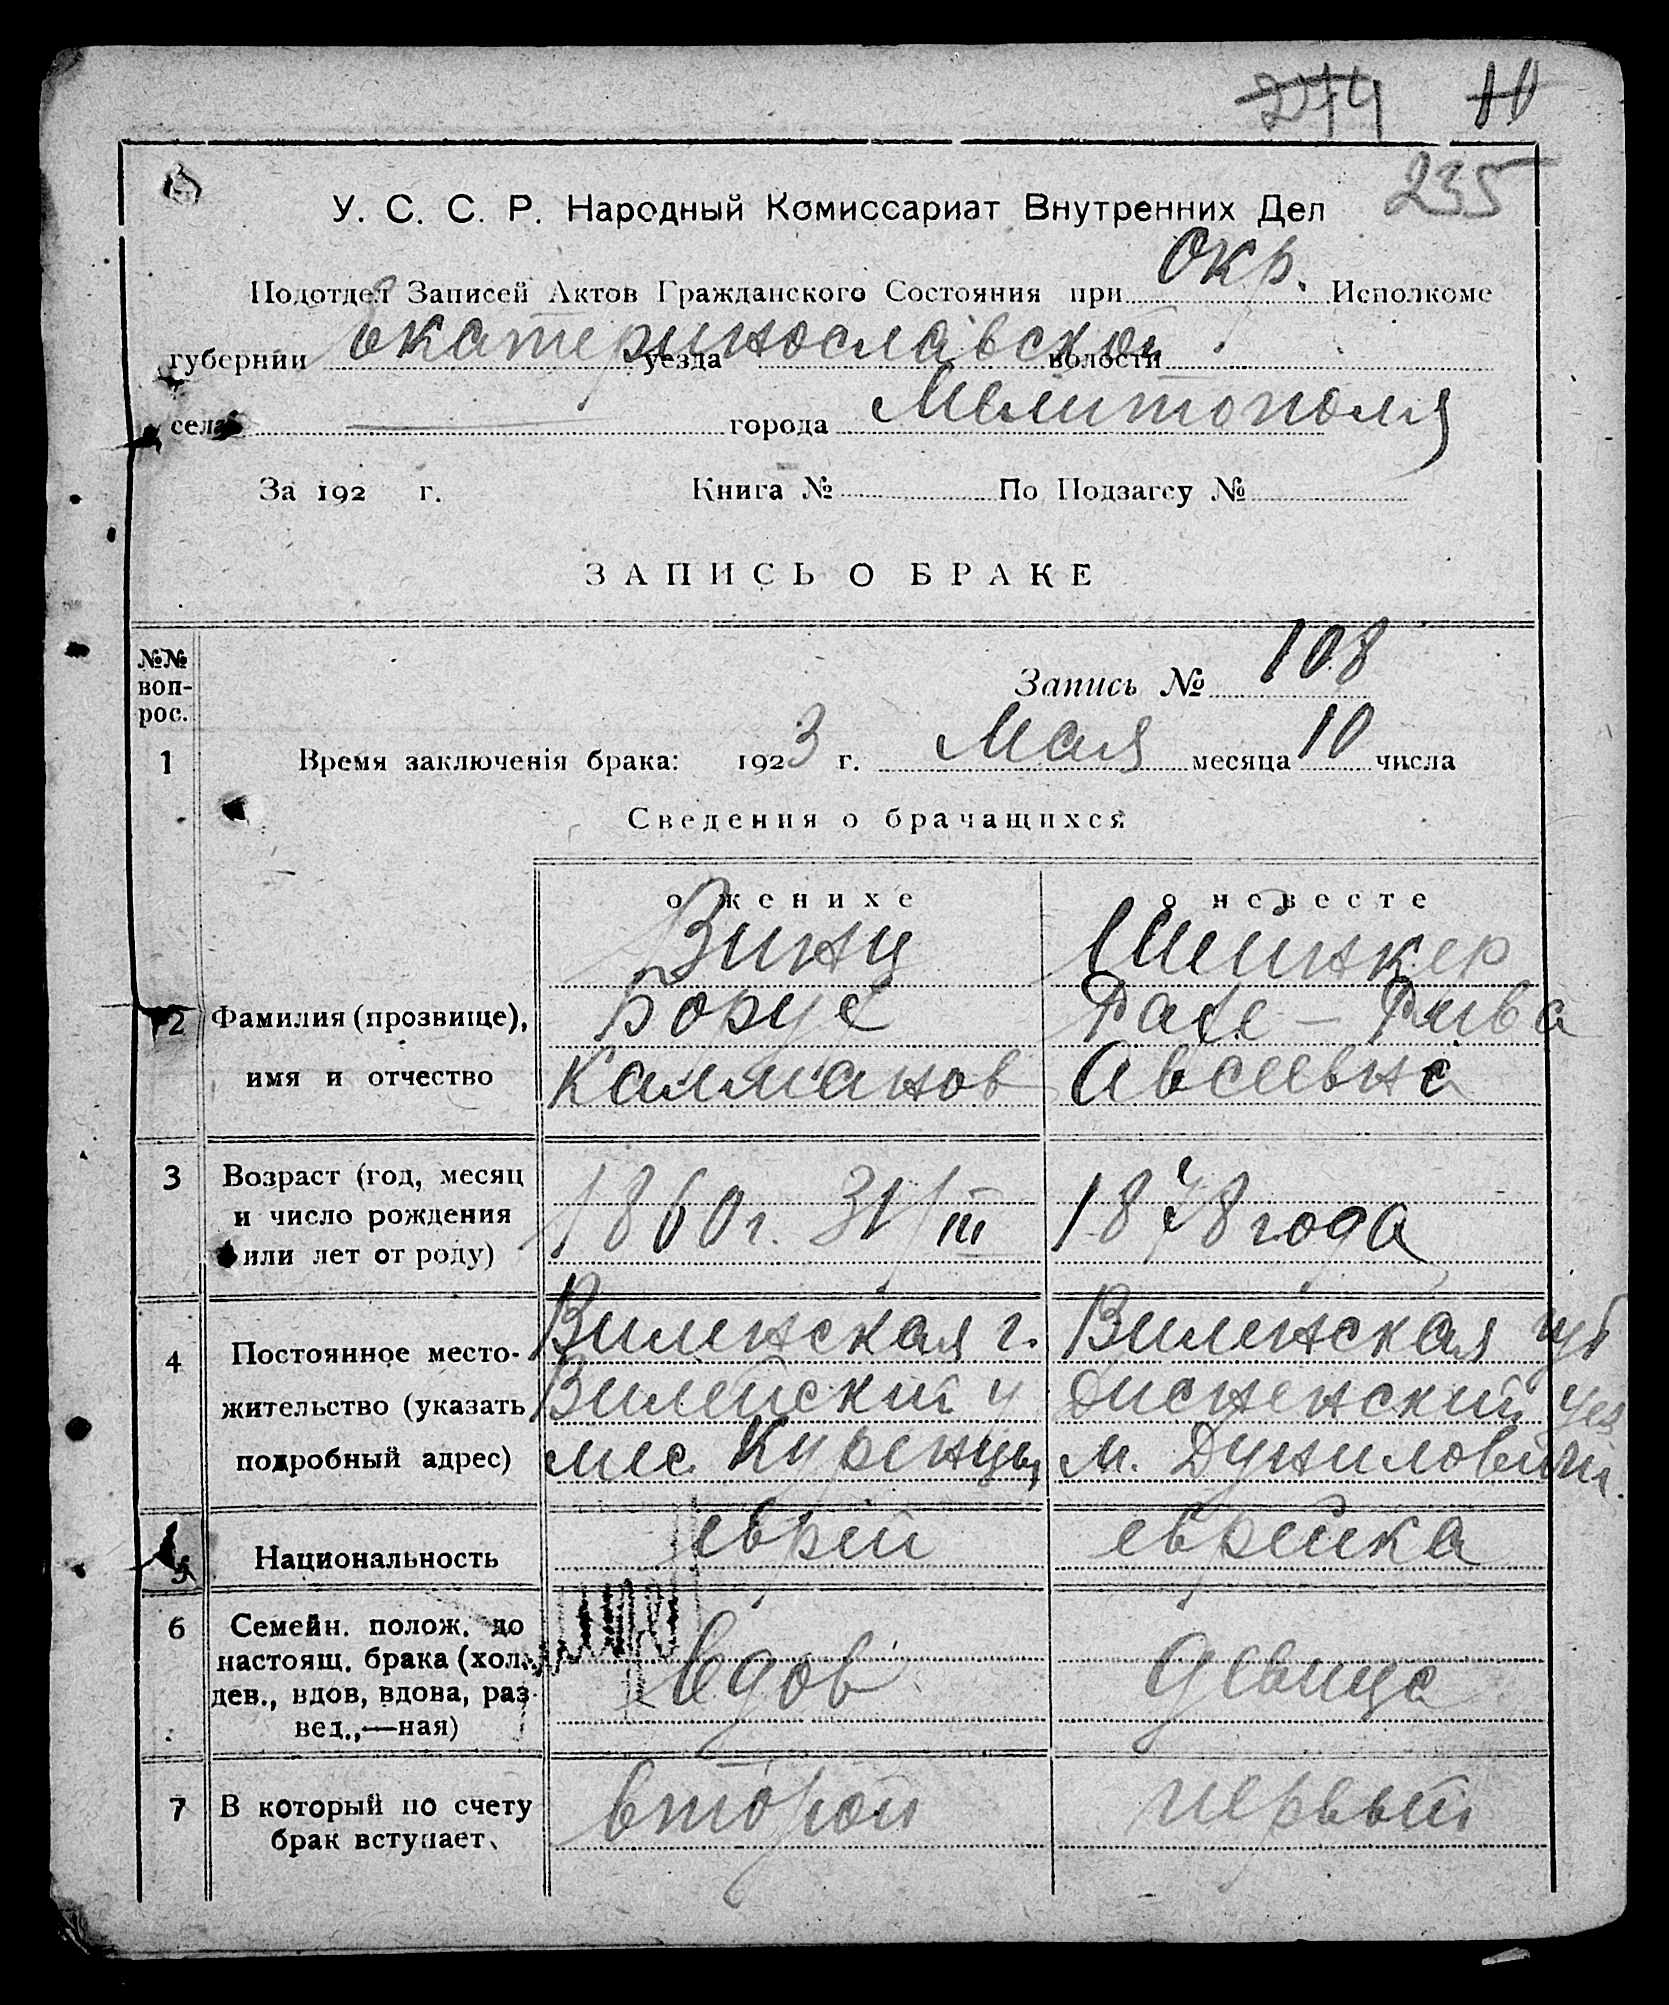 244 10
235
У. С. С. Р. Народный Комиссариат Внутренних Дел
Подотдел Записей Актов Гражданского Состояния при Окр. Исполкоме
губернии Екатеринославской уезда волости
села — города Мелитополя
За 192 г. Книга № По Подзагсу №
ЗАПИСЬ О БРАКЕ
№№ воп-рос.
Запись № 108
1 Время заключенія брака: 1923 г. Мая месяца 10 числа
Сведения о брачащихся
о женихе о невесте
Зинц Шейнкер
2 Фамилия (прозвище), Борух Рахе - Рыва
имя и отчество Калманов Авсеевна
3 Возраст (год, месяц
и число рождения 1860 г. 31/III 1878 года
или лет от роду)
Виленская г. Виленская губ
4 Постоянное место-
жительство (указать Вилейский у Дисненский уез
подробный адрес) мес. Куренцы, м. Дуниловичи.
5 Национальность еврей еврейка
6 Семейн. полож. до
настоящ. брака (хол., вдов девица
дев., вдов, вдова, раз-
вед.,—ная)
7 В который по счету второй первый
брак вступает